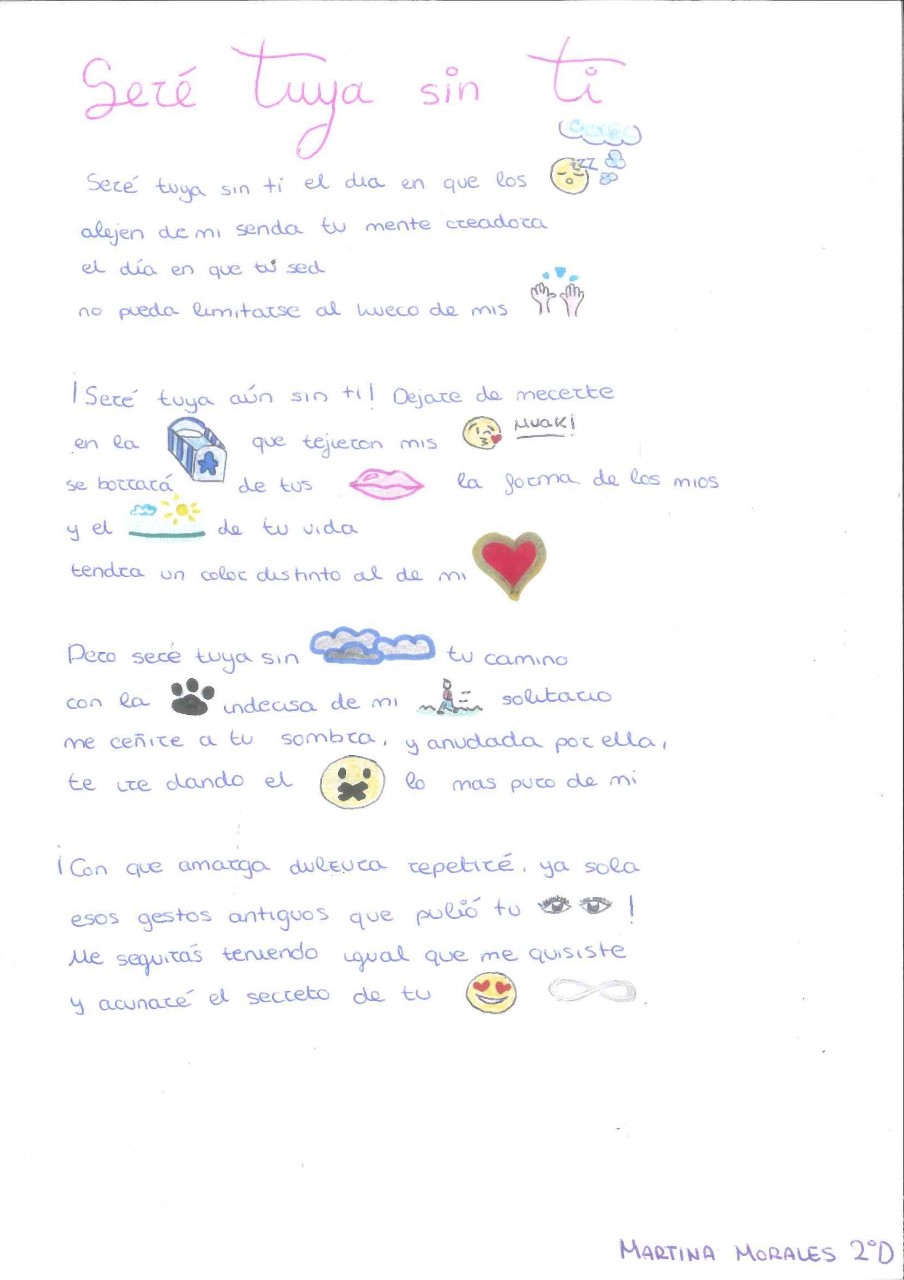 Seré tuya sin ti
Seré tuya sin ti el dia en que los
zzz
alejen de mi senda tu mente creadora
el día en que tú sed
no pueda limitarse al hueco de mis
¡Seré tuya aún sin ti! Dejare de mecerte
en la que tejieron mis
MUAK!
se borrará de tus la forma de los mios
y el de tu vida
tendra un color distinto al de mi
Pero seré tuya sin tu camino
con la indecisa de mi solitario
me ceñire a tu sombra, y anudada por ella,
te ire dando el lo mas puro de mi
¡Con que amarga dulzura repetiré, ya sola
esos gestos antiguos que pulió tu !
Me seguirás teniendo igual que me quisiste
y acunaré el secreto de tu
MARTINA MORALES 2ºD